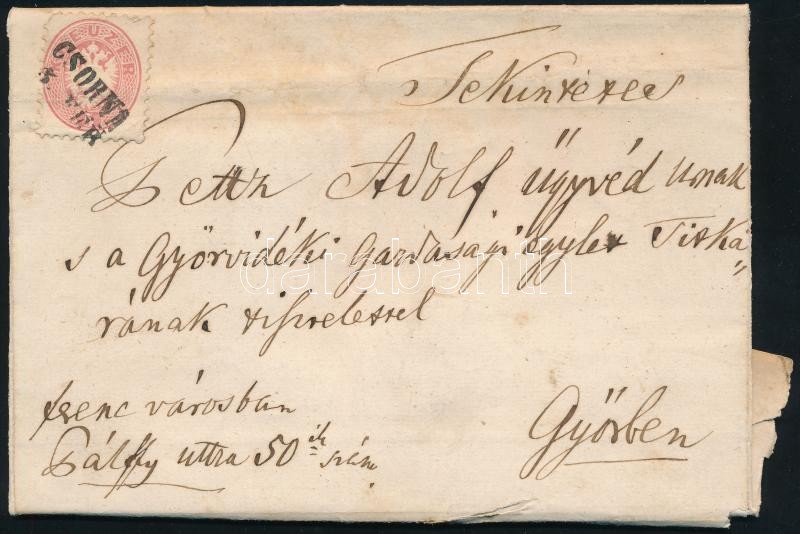 KREUZER
CSORNA
Tekintetes
Adolf ügyvéd Urnak
s a Győrvidéki Gazdasági egylet Titká„
rának tisztelettel
ferenc városban
Pálffy uttza 50 ik szám
Győrben
darabanth